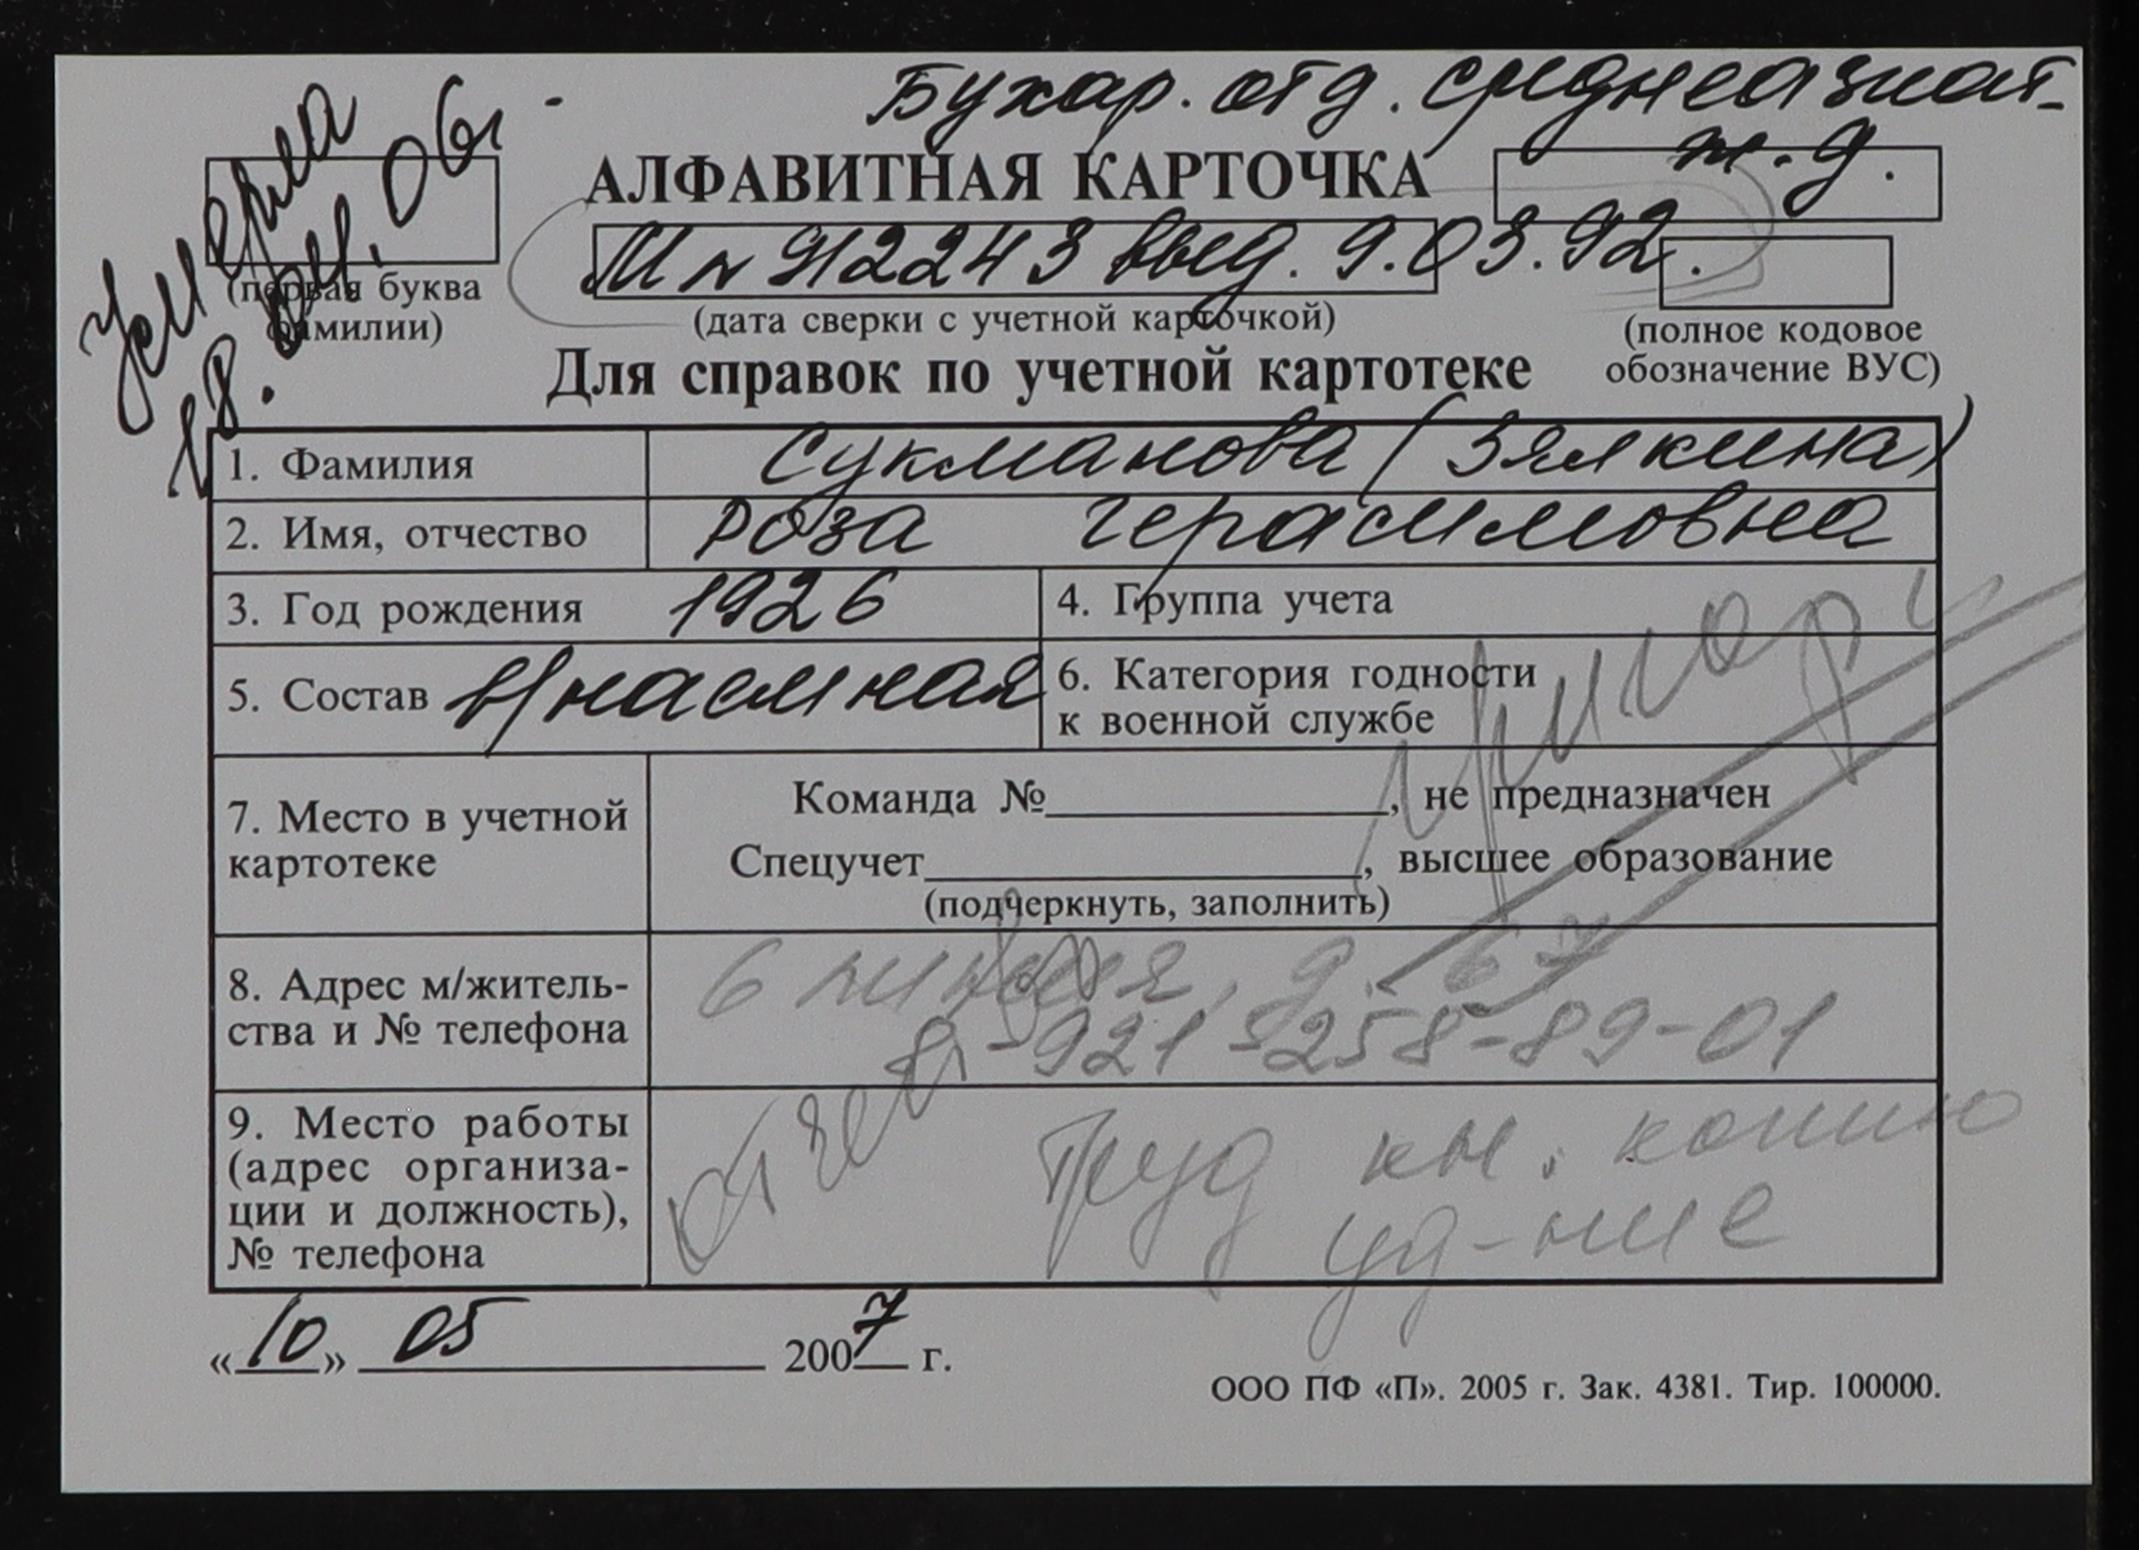 Бухар. отд. среднеазиат.
ж.д.
Умерла
18. 06г.
АЛФАВИТНАЯ КАРТОЧКА
М № 912243 выд. 9.03.92.
(первая буква
фамилии)
(дата сверки с учетной карточкой)
(полное кодовое
обозначение ВУС)
Для справок по учетной картотеке
1. Фамилия Сукманова (Зялкина)
2. Имя, отчество Роза Герасимовна
3. Год рождения 1926
4. Группа учета
5. Состав в/наемная
6. Категория годности
к военной службе
7. Место в учетной
картотеке
Команда №, не предназначен
Спецучет, высшее образование
(подчеркнуть, заполнить)
8. Адрес м/житель-
ства и № телефона
6 линия, д. 67
8-921-258-89-01
9. Место работы
(адрес организа-
ции и должность),
№ телефона
Труд кн. копию
уд-ние
«10» 05 2007 г.
ООО ПФ «П». 2005 г. Зак. 4381. Тир. 100000.